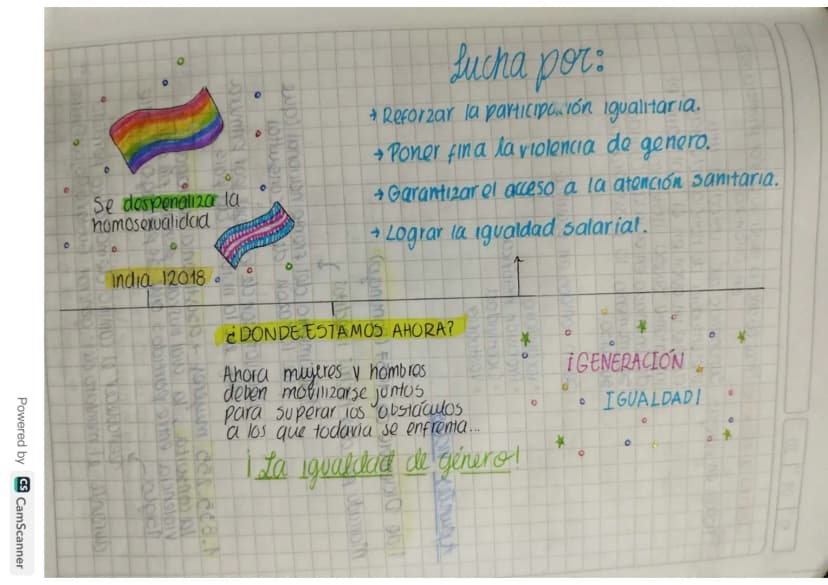 Lucha por:
→ Reforzar la participación igualitaria.
→ Poner fin a la violencia de genero.
→ Garantizar el acceso a la atención sanitaria.
→ Lograr la igualdad salarial.
Se despenaliza la
homosexualidad
India 12018
¿DONDE ESTAMOS AHORA?
Ahora mujeres y hombres
deben movilizarse juntos
para superar los obstáculos
a los que todavia se enfrenta...
¡La igualdad de género!
¡GENERACIÓN
IGUALDAD!
Powered by CS CamScanner